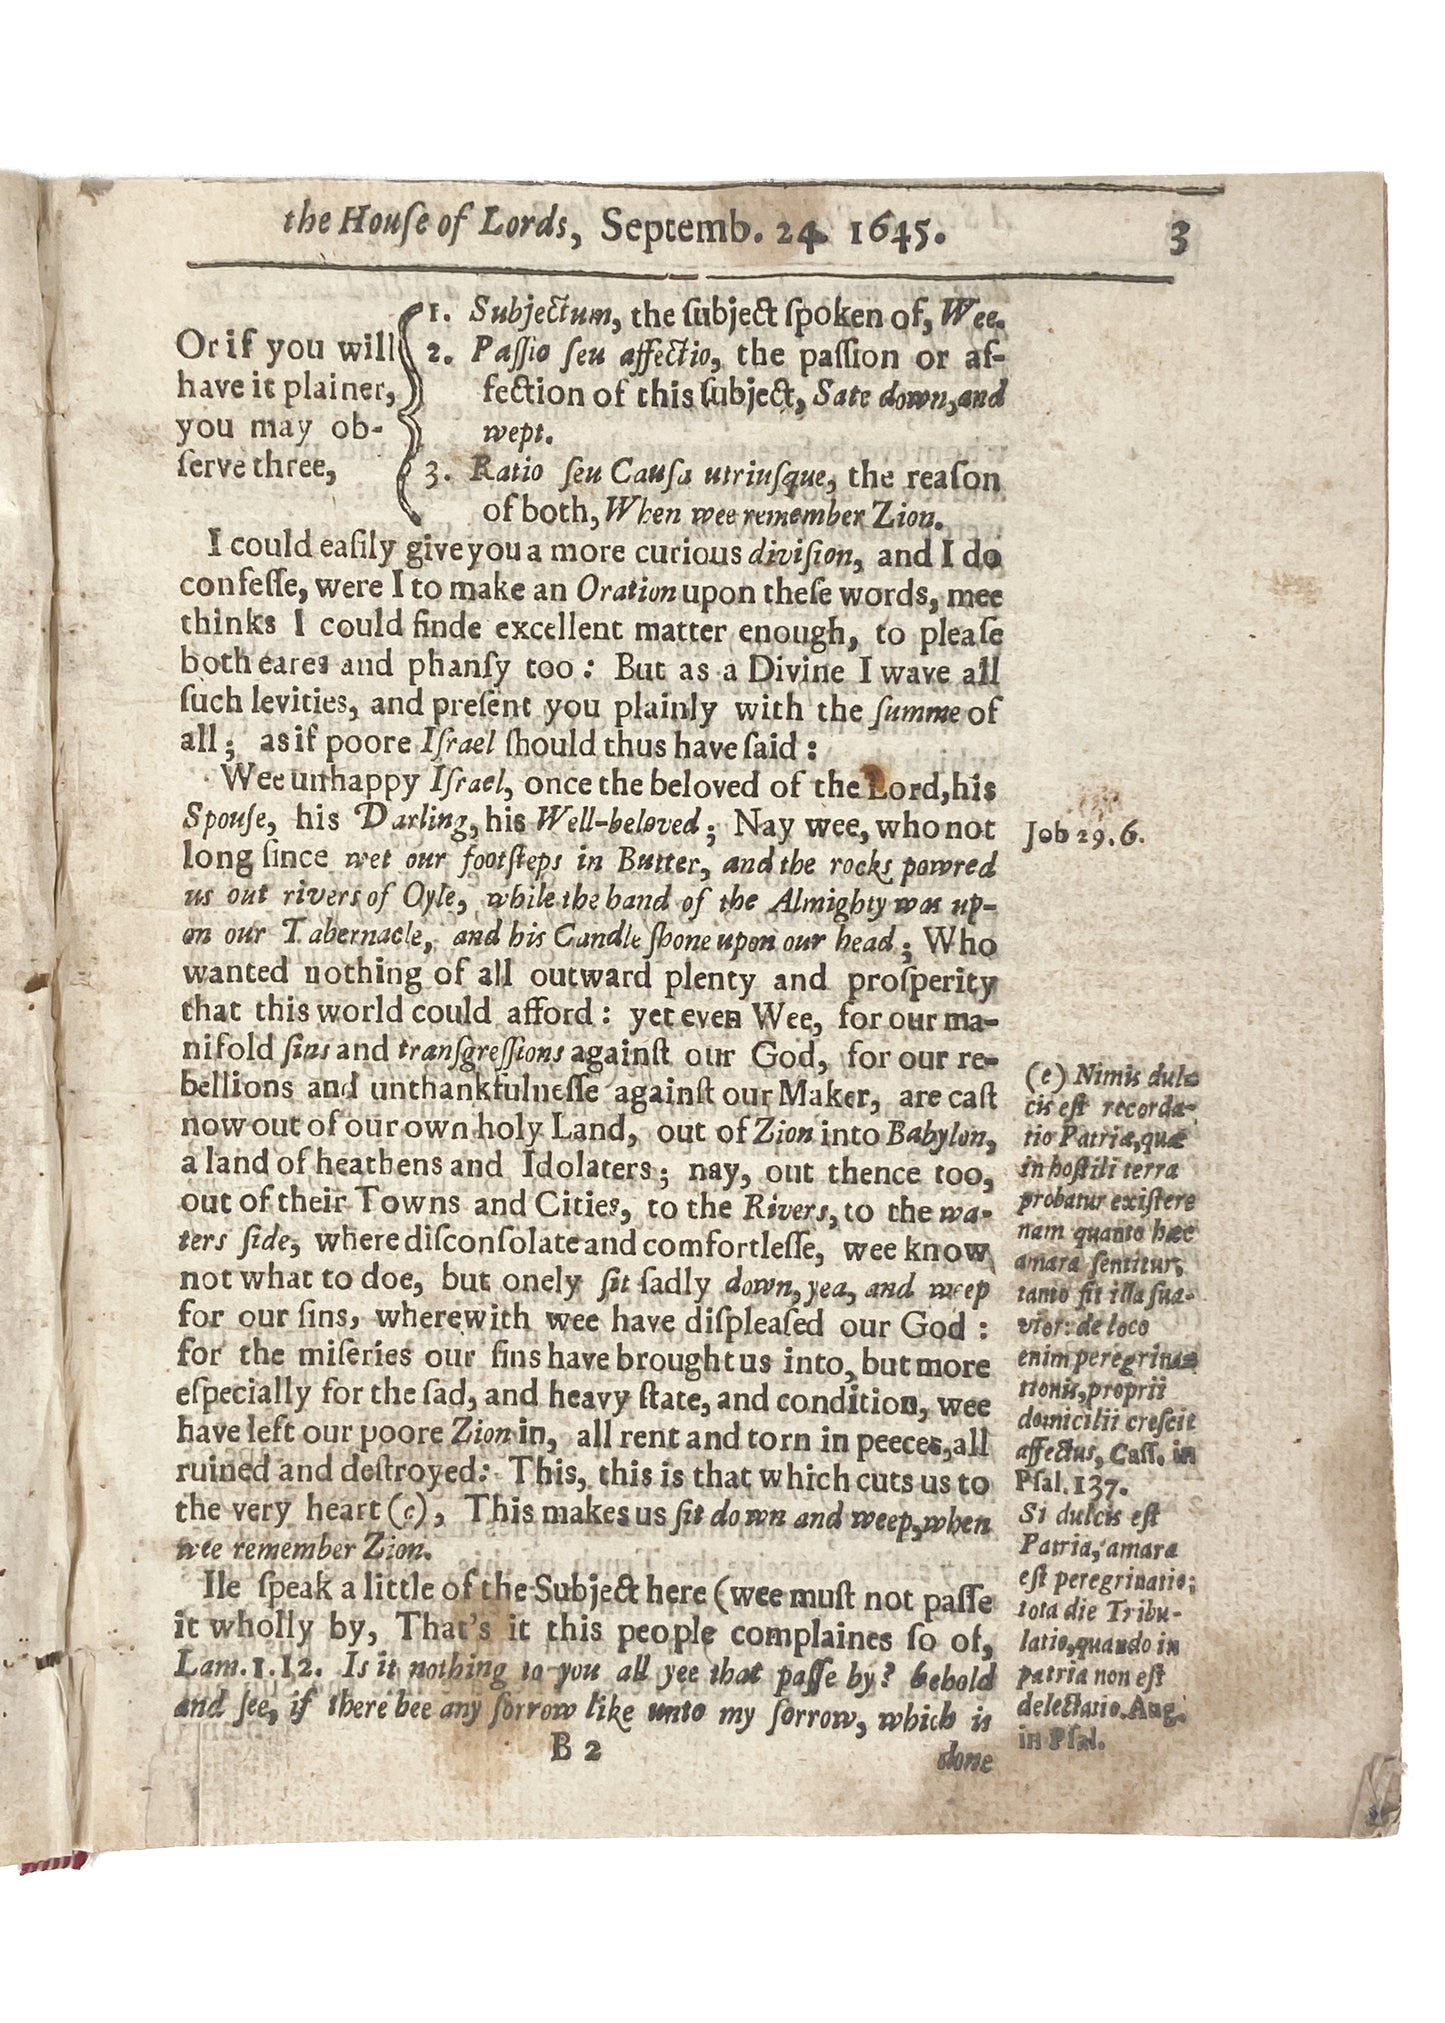 the Houſe of Lords, Septemb. 24. 1645. 3
Or if you will
have it plainer,
you may ob-
ſerve three,
1. Subjectum, the ſubject ſpoken of, Wee.
2. Paſſio ſeu affectio, the paſſion or af-
fection of this ſubject, Sate down, and
wept.
3. Ratio ſeu Cauſa utriuſque, the reaſon
of both, When wee remember Zion.
I could eaſily give you a more curious diviſion, and I do
confeſſe, were I to make an Oration upon theſe words, mee
thinks I could finde excellent matter enough, to pleaſe
both eares and phanſy too: But as a Divine I wave all
ſuch levities, and preſent you plainly with the ſumme of
all; as if poore Iſrael ſhould thus have ſaid:
Wee unhappy Iſrael, once the beloved of the Lord, his
Spouſe, his Darling, his Well-beloved; Nay wee, who not
long ſince wet our footſteps in Butter, and the rocks powred
us out rivers of Oyle, while the hand of the Almighty was up-
on our Tabernacle, and his Candle ſhone upon our head; Who
wanted nothing of all outward plenty and proſperity
that this world could afford: yet even Wee, for our ma-
nifold ſins and tranſgreſſions againſt our God, for our re-
bellions and unthankfulneſſe againſt our Maker, are caſt
now out of our own holy Land, out of Zion into Babylon,
a land of heathens and Idolaters; nay, out thence too,
out of their Towns and Cities, to the Rivers, to the wa-
ters ſide, where diſconſolate and comfortleſſe, wee know
not what to doe, but onely ſit ſadly down, yea, and weep
for our ſins, wherewith wee have diſpleaſed our God:
for the miſeries our ſins have brought us into, but more
eſpecially for the ſad, and heavy ſtate, and condition, wee
have left our poore Zion in, all rent and torn in peeces, all
ruined and deſtroyed: This, this is that which cuts us to
the very heart (e), This makes us ſit down and weep, when
wee remember Zion.
Ile ſpeak a little of the Subject here (wee muſt not paſſe
it wholly by, That's it this people complaines ſo of,
Lam. 1. 12. Is it nothing to you all yee that paſſe by? behold
and ſee, if there bee any ſorrow like unto my ſorrow, which is
B 2
done
Job 29. 6.
(e) Nimis dul-
cis eſt recorda-
tio Patriæ, quæ
in hoſtili terra
probatur exiſtere
nam quanto hæc
amara ſentitur,
tanto fit illa ſua-
vior: de loco
enim peregrina-
tionis, proprii
domicilii creſcit
affectus, Caſſ. in
Pſal. 137.
Si dulcis eſt
Patria, amara
eſt peregrinatio;
tota die Tribu-
latio, quando in
patria non eſt
delectatio. Aug.
in Pſal.